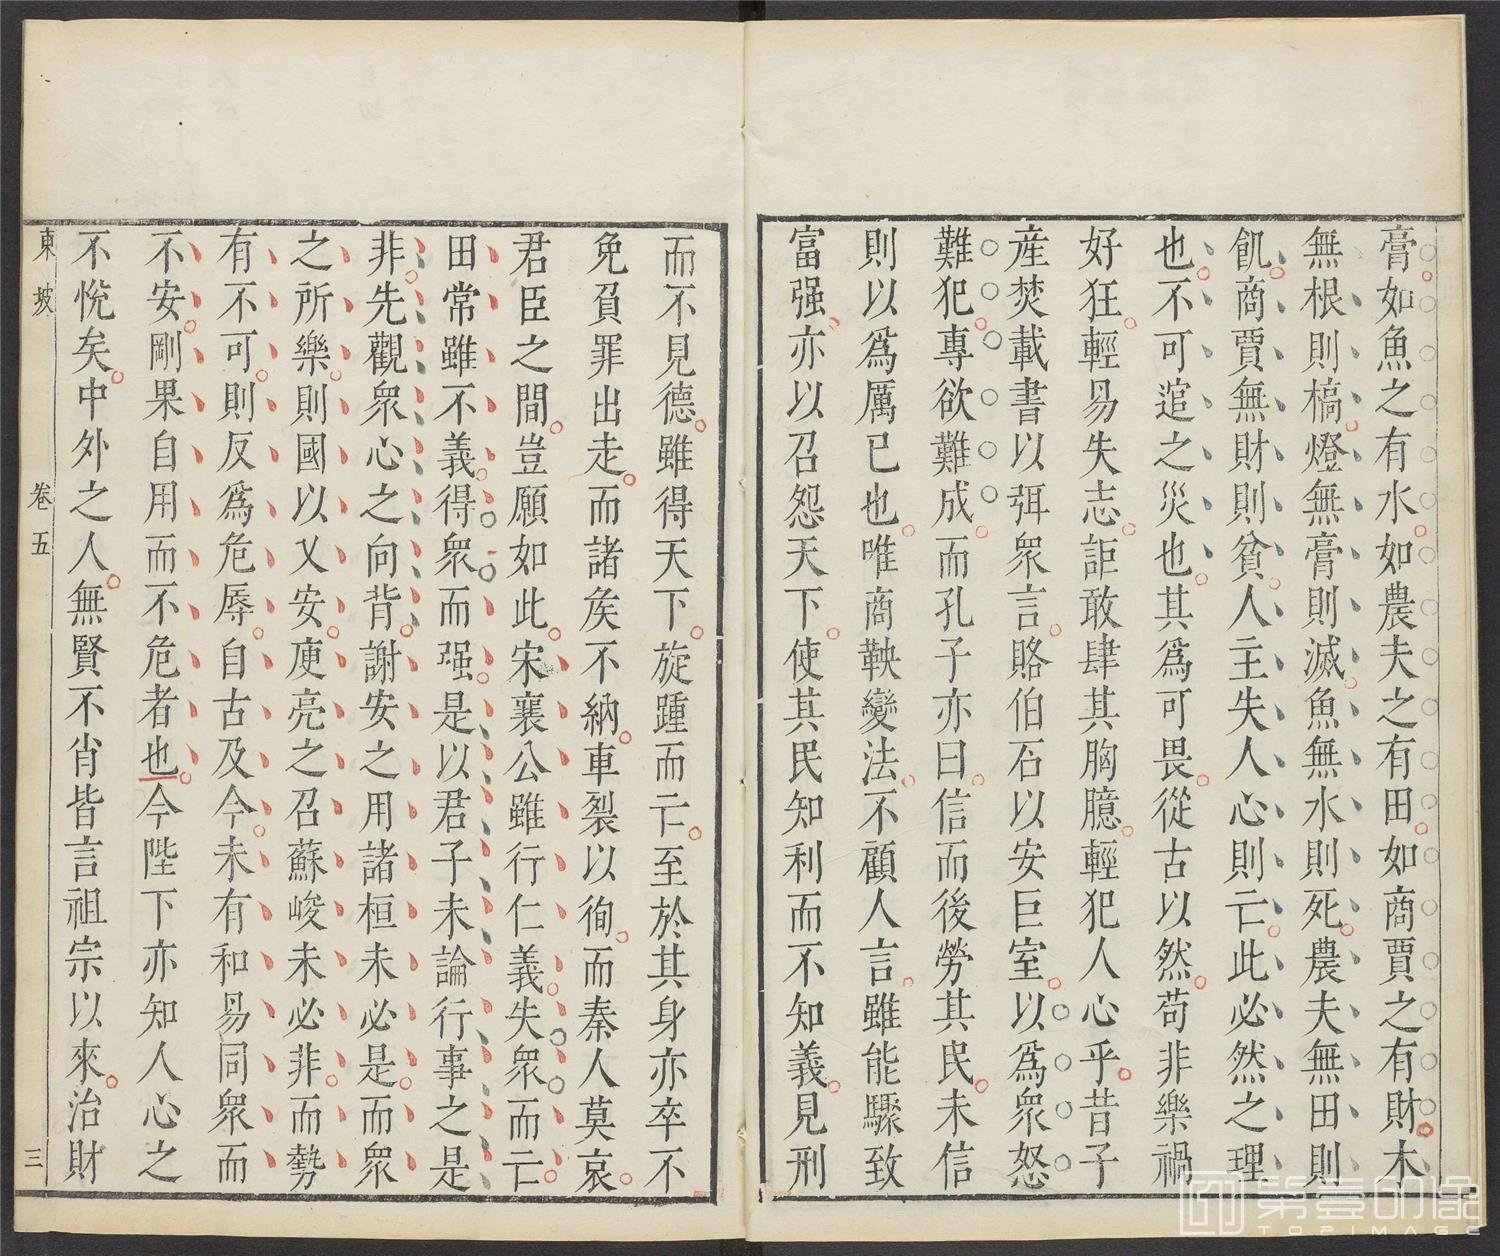 膏如魚之有水如農夫之有田如商賈之有財木
無根則槁燈無膏則滅魚無水則死農夫無田則
飢商賈無財則貧人主失人心則亡此必然之理
也不可逭之災也其爲可畏從古以然苟非樂禍
好狂輕易失志詎敢肆其胸臆輕犯人心乎昔子
産焚載書以弭衆言賂伯石以安巨室以爲衆怒
難犯專欲難成而孔子亦曰信而後勞其民未信
則以爲厲已也唯商鞅變法不顧人言雖能驟致
富强亦以召怨天下使其民知利而不知義見刑
而不見德雖得天下旋踵而亡至於其身亦卒不
免負罪出走而諸矦不納車裂以徇而秦人莫哀
君臣之間豈願如此宋襄公雖行仁義失衆而亡
田常雖不義得衆而强是以君子未論行事之是
非先觀衆心之向背謝安之用諸桓未必是而衆
之所樂則國以乂安庾亮之召蘇峻未必非而勢
有不可則反爲危辱自古及今未有和易同衆而
不安剛果自用而不危者也今陛下亦知人心之
不悅矣中外之人無賢不肖皆言祖宗以來治財
東坡 卷五 三
第壹印像
TOPIMAGE